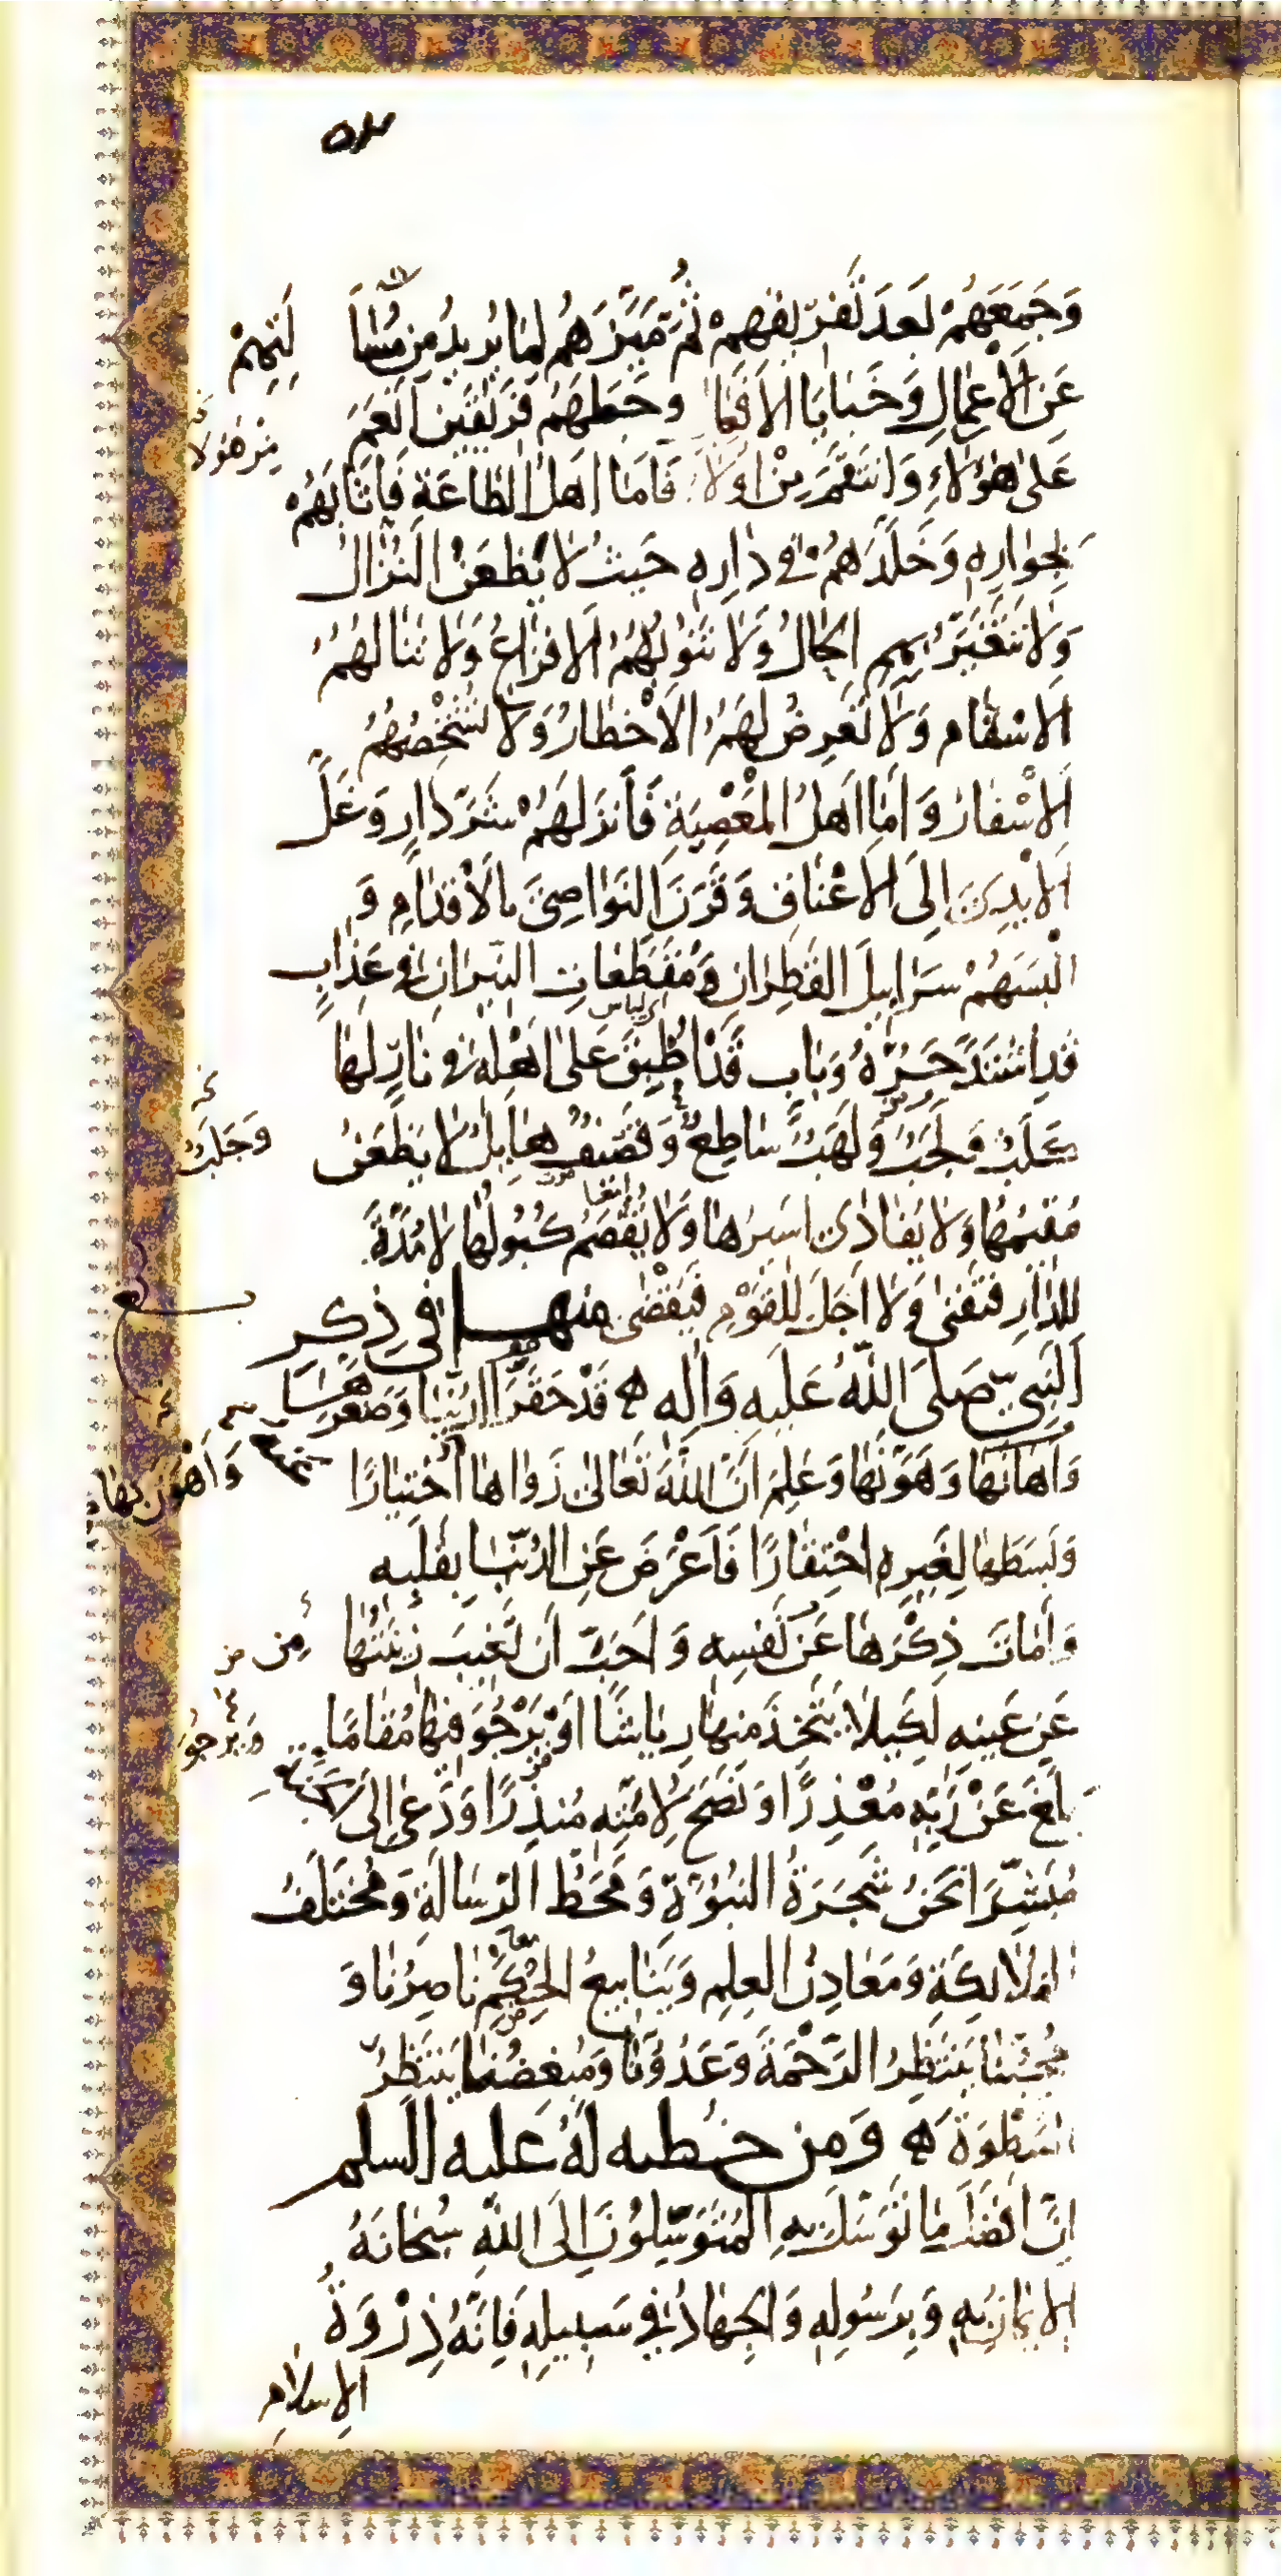 وَجَمَعَهُمْ بَعدَ تَفَرُّیقِهِمْ ثُمَّ مَیَّزَهُم لِما یُریدُ مِن مُسٰاَ لَتِهِمْ
عَنِ الْأَعْمٰالِ وَخَبٰایَا الاَفعٰا وَجَعَلَهُم فَریقَینِ اَنعَمَ
عَلیٰ هٰؤُلٰاءِ وَانتَقَمَ مِنْ هٰؤُلاَ فَاَمّا اَهلُ الطّاعَةِ فَاَثٰابَهُمْ
مِنْ هٰؤُلا
بِجِوٰارِهِ وَخَلَّدَهُم فی دٰارِهِ حَیثُ لا یَظعَنُ النُزّالُ
وَلا تَتَغَیَّرُ بِهِم الحٰالُ وَلا تَنُوبُهُمُ الافزٰاعُ وَلا تَنٰالُهُمُ
الاسقٰام وَلا تَعرِضُ لَهُمُ الاَخْطارُ وَلا تُشخِصُهُمُ
الاَسْفٰارُ وَ اَمّا اَهلُ المَعْصِیَةِ فَاَنزَلَهُمْ شَرَّ دٰارٍ وَ غَلَّ
الاَیْدِیَ اِلَی الاَعْنٰاقِ وَ قَرَنَ النَوٰاصِیَ بِالاَقدٰامِ وَ
اَلْبَسَهُمْ سَرٰابیلَ القَطِرٰانِ وَمُقَطَّعٰاتِ النیرٰانِ فی عَذٰابٍ
قَدِ اشتَدَّ حَرُّهُ وَبٰابٍ قَد اُطبِقَ عَلیٰ اَهلِهِ فی نٰارٍ لَهٰا
کَلَبٌ وَلَجَبٌ وَلَهَبٌ سٰاطِعٌ وَقَصیفٌ هٰایِلٌ لا یَظعَنُ
وَجَلَبٌ
مُقیمُهٰا وَلا یُفٰادیٰ اَسیرُهٰا وَلا یُفصَمُ کُبُولُهٰا لا مُدَّةَ
لِلدّٰارِ فَتَفنیٰ وَلا اَجَلَ لِلقَوْمِ فَیُقضیٰ منهـــا فی ذِکِر
النَبِیِّ صَلَی اللّٰهُ عَلَیهِ وَاٰلِه ه قَدْ حَقَّرَ الدُّنیا وَصَغَّرَهٰا
وَاَهٰانَهٰا وَهَوَّنَهٰا وَعَلِمَ اَنَّ اللّٰهَ تَعٰالیٰ زَوٰاهٰا اخْتِیٰارًا
وَاَهْوَنَ بِهٰا
وَبَسَطَهٰا لِغَیرِهِ احْتِقٰارًا فَاَعْرَضَ عَنِ الدُّنیٰا بِقَلبِهِ
وَاَمٰاتَ ذِکْرَهٰا عَن نَفسِهِ وَ اَحَبَّ اَن تَغیبَ زینَتُهٰا
مِن
عَن عَینِهِ لِکَیلا یَتَّخِذَ مِنهٰا رِیٰاشًا اَوْ یَرْجُوَ فیهٰا مُقٰامًا
وَیَرجُوَ
بَلَّغَ عَنْ رَبِّهِ مُعْذِرًا وَ نَصَحَ لِاُمَّتِهِ مُنذِرًا وَ دَعیٰ اِلَی الجَنَّةِ
مُبَشِّرًا نَحنُ شَجَرَةُ النُبُوَّةِ وَ مَحَطُّ الرِّسٰالَةِ وَ مُختَلَفُ
المَلٰائِکَةِ وَ مَعٰادِنُ العِلِمِ وَ یَنٰابیعُ الحِکَمِ نٰاصِرُنٰا وَ
مُحِبُّنٰا یَنتَظِرُ الرَّحْمَةَ وَعَدُوُّنٰا وَمُبغِضُنٰا یَنتَظِرُ
السَّطْوَةَ ه وَ مِن خُطبه لَهُ عَلَیه السلم
اِنَّ اَفضَلَ مٰا تَوَسَّلَ بِهِ المُتَوَسِّلُونَ اِلَی اللّٰهِ سُبحٰانَهُ
الاِیمٰانُ بِهِ وَ بِرَسُولِهِ وَ الجِهٰادُ فی سَبیلِهِ فَاِنَّهُ ذِرْوَةُ
الاِسلٰامِ